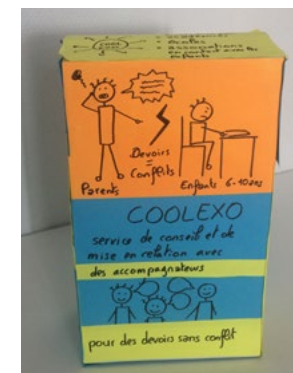 écoles
associations
Devoirs
=
Conflits
Parents
Enfants 6-10 ans
COOLEXO
service de conseil et de
mise en relation avec
des accompagnateurs
pour des devoirs sans conflit